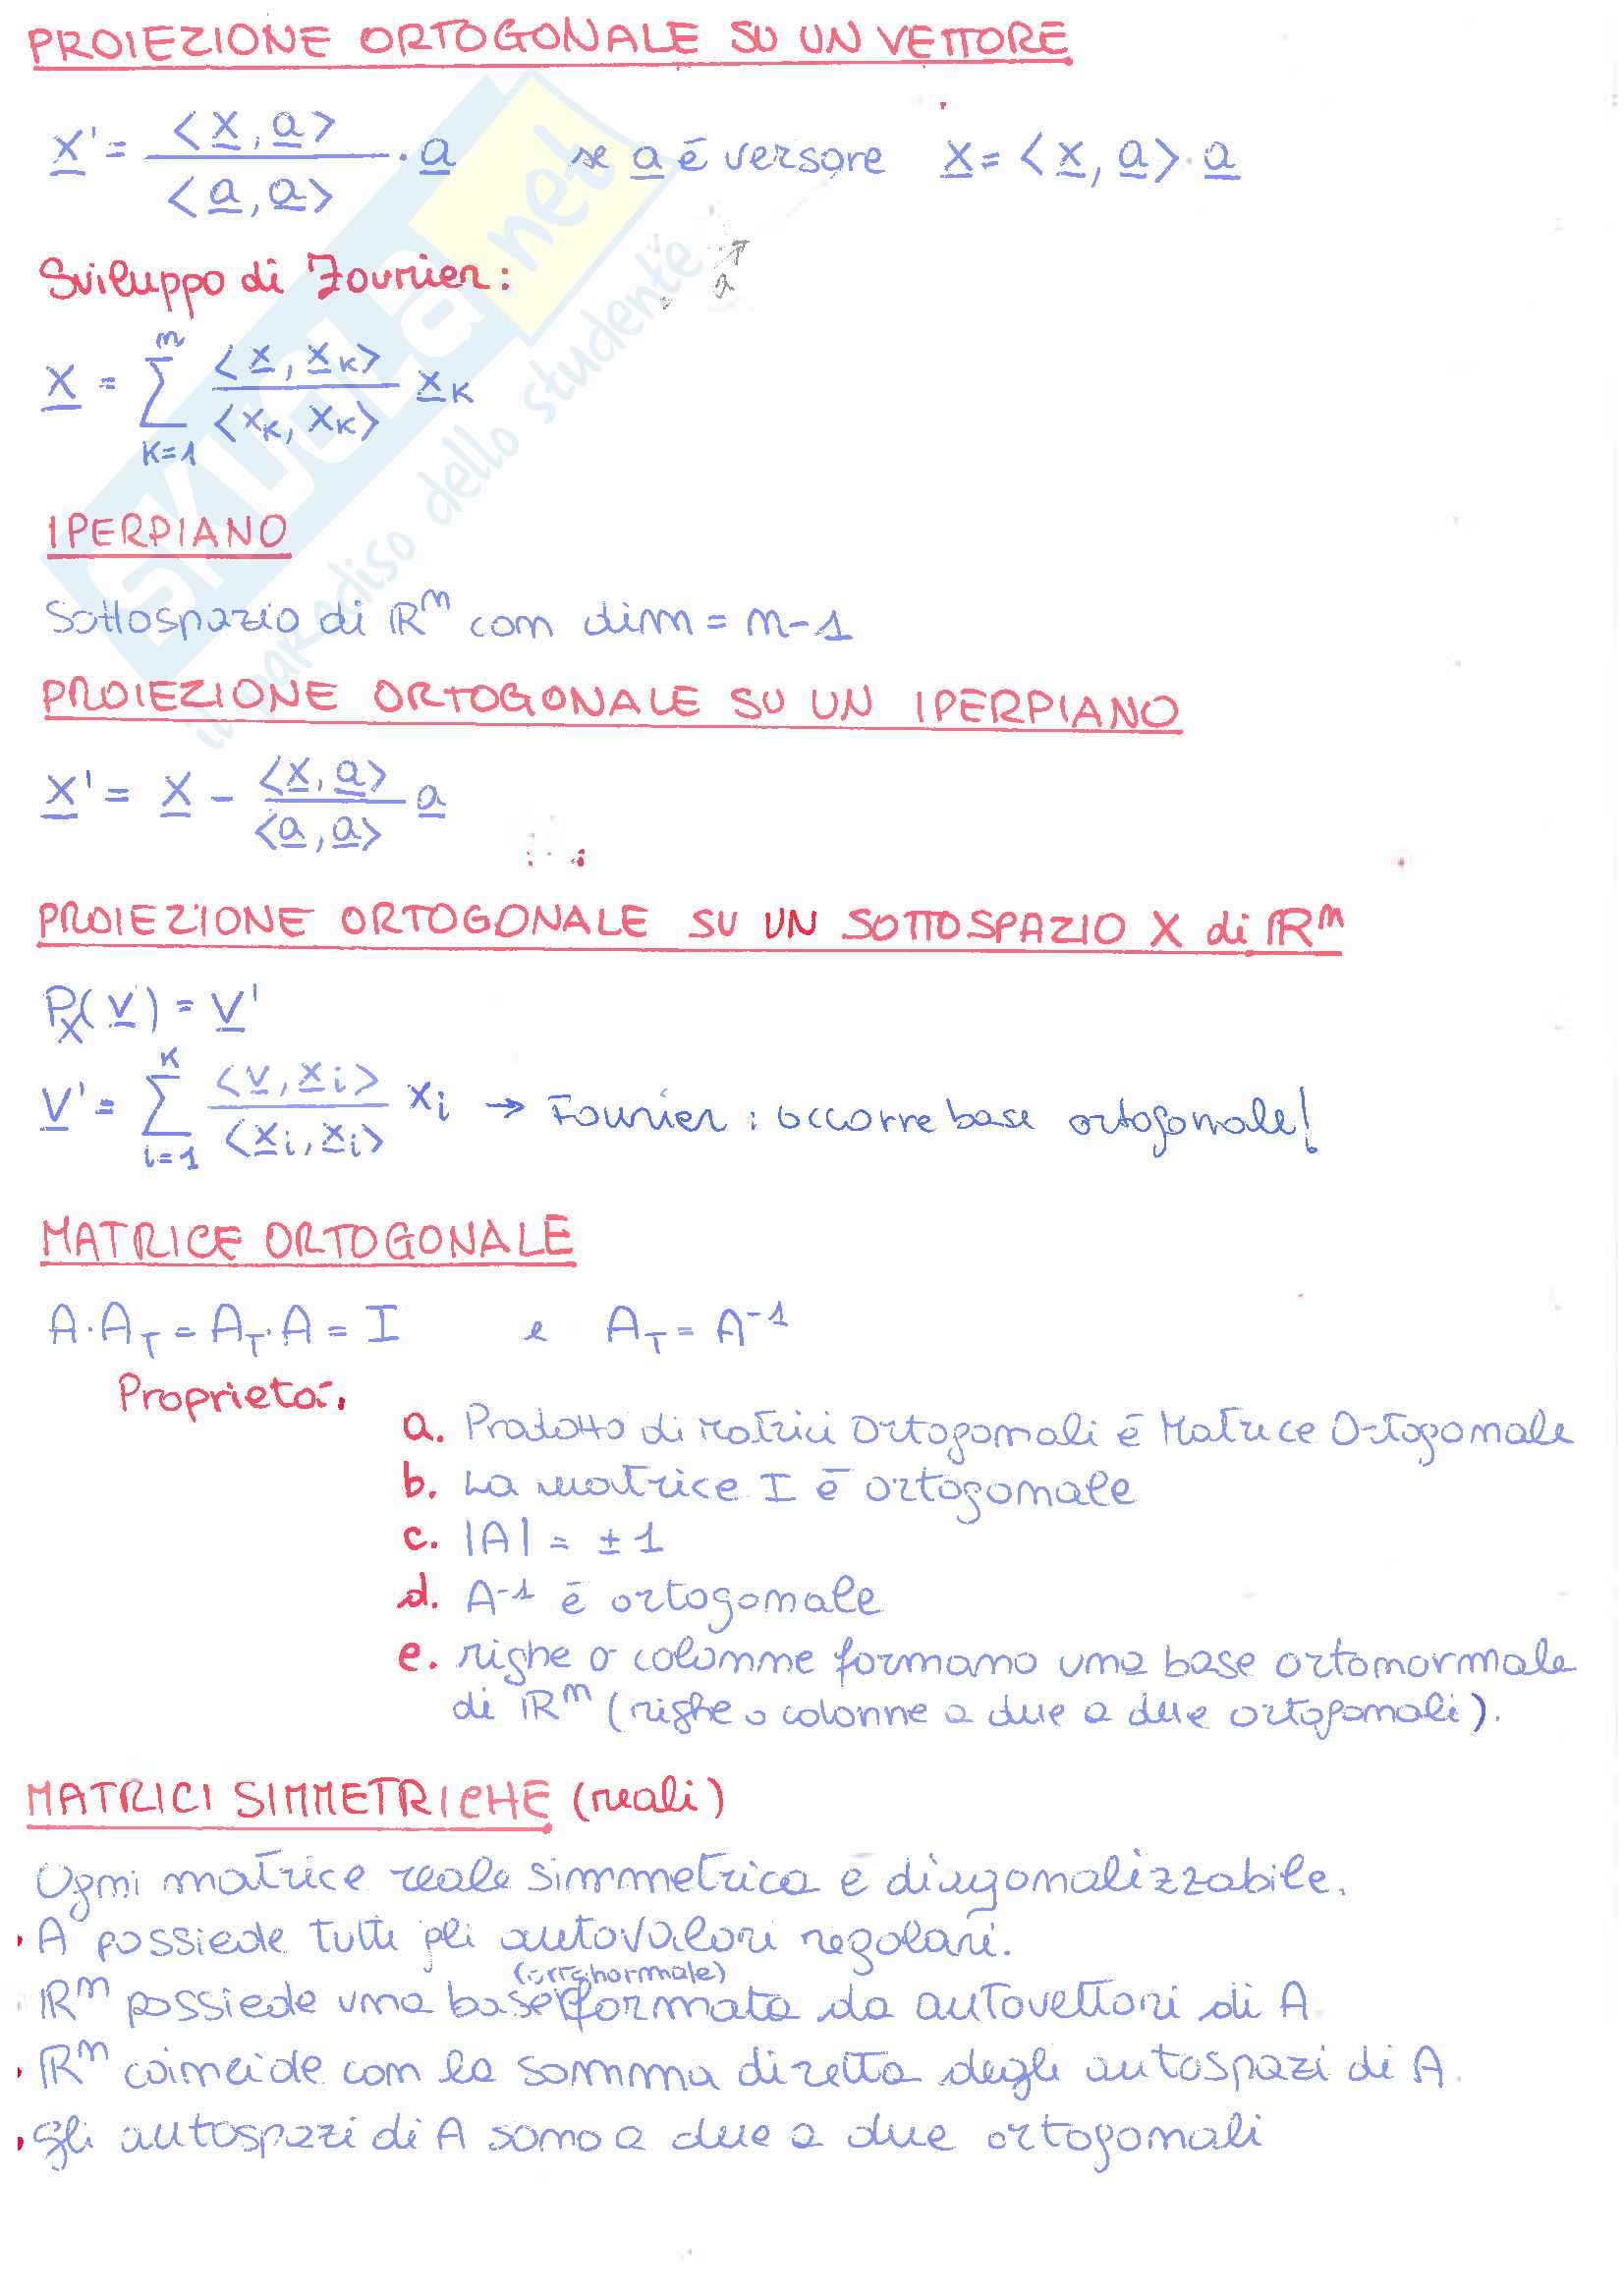 PROIEZIONE ORTOGONALE SU UN VETTORE
x' = <x, a> / <a, a> · a se a è versore x = <x, a> · a
a
Sviluppo di Fourier:
x = Σ_{K=1}^{n} <x, x_K> / <x_K, x_K> x_K
IPERPIANO
Sottospazio di ℝⁿ con dim = n-1
PROIEZIONE ORTOGONALE SU UN IPERPIANO
x' = x - <x, a> / <a, a> a
PROIEZIONE ORTOGONALE SU UN SOTTOSPAZIO X di ℝⁿ
P_X(v) = v'
v' = Σ_{i=1}^{K} <v, x_i> / <x_i, x_i> x_i → Fourier: occorre base ortogonale!
MATRICE ORTOGONALE
A·A_T = A_T·A = I e A_T = A⁻¹
Proprietà:
a. Prodotto di Matrici Ortogonali è Matrice Ortogonale
b. La matrice I è ortogonale
c. |A| = ±1
d. A⁻¹ è ortogonale
e. righe o colonne formano una base ortonormale
di ℝⁿ (righe o colonne a due a due ortogonali).
MATRICI SIMMETRICHE (reali)
Ogni matrice reale simmetrica è diagonalizzabile.
• A possiede tutti gli autovalori regolari.
(ortonormale)
ℝⁿ possiede una base formata da autovettori di A
• ℝⁿ coincide con la somma diretta degli autospazi di A.
• gli autospazi di A sono a due a due ortogonali
SKUOLA.net
il paradiso dello studente